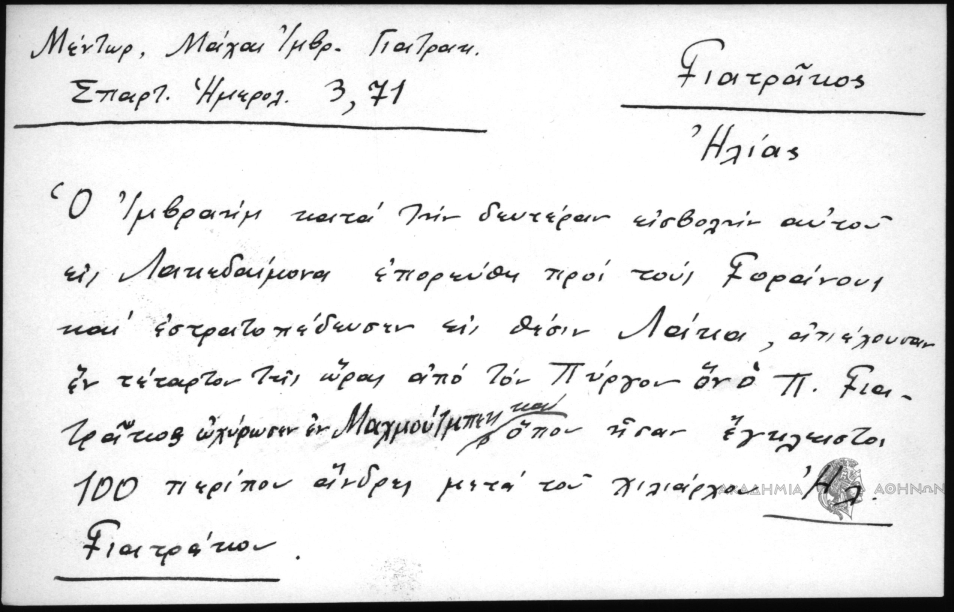 Μέντωρ, Μάχαι Ἰμβρ. Γιατρακ.
Σπαρτ. Ἡμερολ. 3,71
Γιατρᾶκος
Ἠλίας
Ὁ Ἰμβραήμ κατά τήν δευτέραν εἰσβολήν αὐτοῦ
εἰς Λακεδαίμονα ἐπορεύθη πρός τούς Γοράνους
καί ἐστρατοπέδευσεν εἰς θέσιν Λάκα, ἀπέχουσαν
ἕν τέταρτον τῆς ὥρας ἀπό τόν Πύργον ὅν ὁ Π. Για-
τρᾶκος ὠχύρωσεν ἐν Μαχμούτμπεη καί ὅπου ἦσαν ἔγκλειστοι
100 περίπου ἄνδρες μετά τοῦ χιλιάρχου Ἠλ.
Γιατράκου.
ΑΚΑΔΗΜΙΑ ΑΘΗΝΩΝ